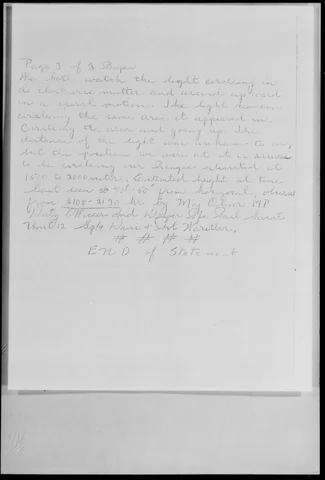 Page 3 of 3 Pages
We both watch the light circleing in
a clockwise matter and around upward
in a spiral motion. The light remain
circleing the same area it appeared in.
Circleing the area and going up. The
distance of the light was unknown to us,
but the position we were at it is
to be circleing our Range estimated at
1500 to 2000 meter. Estimated height at time
last seen 50°-60° from horizonal, observe
from 2100-2130 hr by Maj MP
Duty Officer and
Sgt and
# # # #
END of Statement